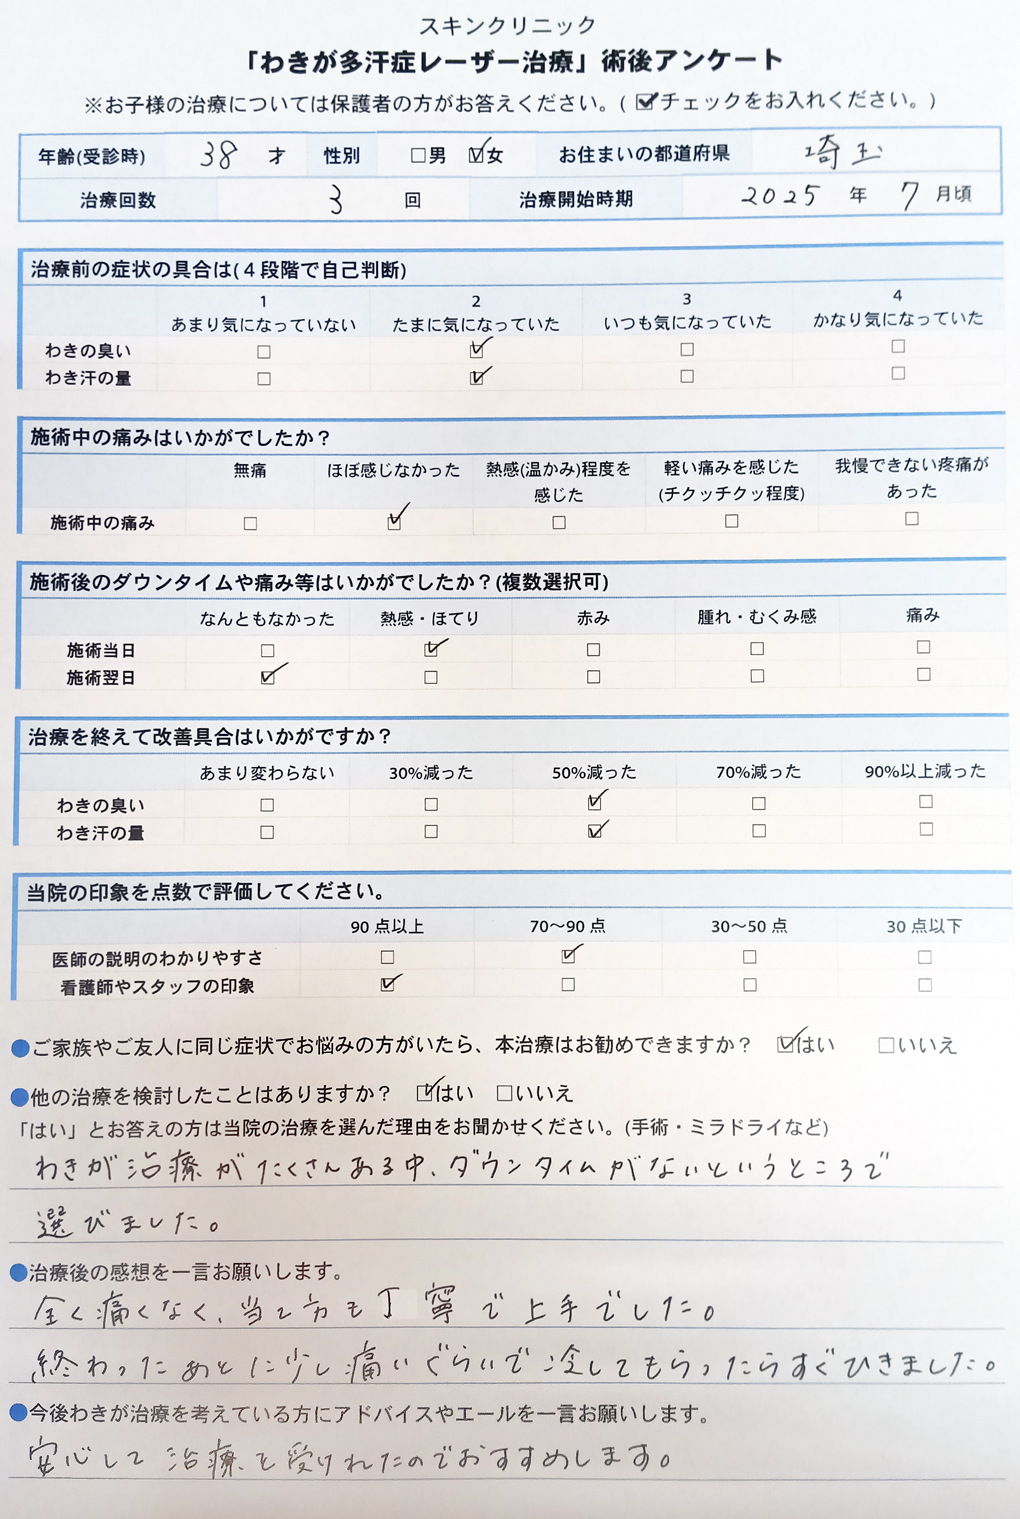 スキンクリニック
「わきが多汗症レーザー治療」術後アンケート
※お子様の治療については保護者の方がお答えください。(☑チェックをお入れください。)
年齢(受診時) 38 才 性別 □男 ☑女 お住まいの都道府県 埼玉
治療回数 3 回 治療開始時期 2025 年 7 月頃
治療前の症状の具合は(4段階で自己判断)
1 2 3 4
あまり気になっていない たまに気になっていた いつも気になっていた かなり気になっていた
わきの臭い □ ☑ □ □
わき汗の量 □ ☑ □ □
施術中の痛みはいかがでしたか?
無痛 ほぼ感じなかった 熱感(温かみ)程度を 軽い痛みを感じた 我慢できない疼痛が
感じた (チクッチクッ程度) あった
施術中の痛み □ ☑ □ □ □
施術後のダウンタイムや痛み等はいかがでしたか?(複数選択可)
なんともなかった 熱感・ほてり 赤み 腫れ・むくみ感 痛み
施術当日 □ ☑ □ □ □
施術翌日 ☑ □ □ □ □
治療を終えて改善具合はいかがですか?
あまり変わらない 30%減った 50%減った 70%減った 90%以上減った
わきの臭い □ □ ☑ □ □
わき汗の量 □ □ ☑ □ □
当院の印象を点数で評価してください。
90点以上 70〜90点 30〜50点 30点以下
医師の説明のわかりやすさ □ ☑ □ □
看護師やスタッフの印象 ☑ □ □ □
●ご家族やご友人に同じ症状でお悩みの方がいたら、本治療はお勧めできますか? ☑はい □いいえ
●他の治療を検討したことはありますか? ☑はい □いいえ
「はい」とお答えの方は当院の治療を選んだ理由をお聞かせください。(手術・ミラドライなど)
わきが治療がたくさんある中、ダウンタイムがないというところで
選びました。
●治療後の感想を一言お願いします。
全く痛くなく、当て方も丁寧で上手でした。
終わったあとに少し痛いぐらいで冷してもらったらすぐひきました。
●今後わきが治療を考えている方にアドバイスやエールを一言お願いします。
安心して治療を受けれたのでおすすめします。